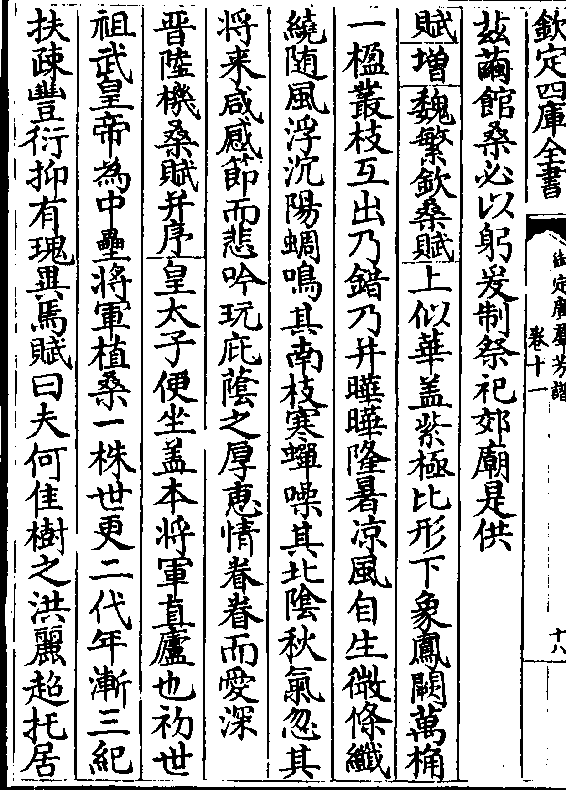 欽定四庫全書
御定廣羣芳譜
卷十一
十八
茲繭館桑必以躬爰制祭祀郊廟是供
賦增魏繁欽桑賦上似華盖紫極比形下象鳳闕萬桷
一楹叢枝互出乃錯乃并曄曄隆暑凉風自生微條纖
繞随風浮沉陽蜩鳴其南枝寒蟬噪其北陰秋氣忽其
将来咸感節而悲吟玩庇蔭之厚惠情眷眷而愛深
晉陸機桑賦并序皇太子便坐盖本将軍直廬也初世
祖武皇帝為中壘将軍植桑一株世更二代年漸三紀
扶疎豐衍抑有瑰異焉賦曰夫何佳樹之洪麗超托居